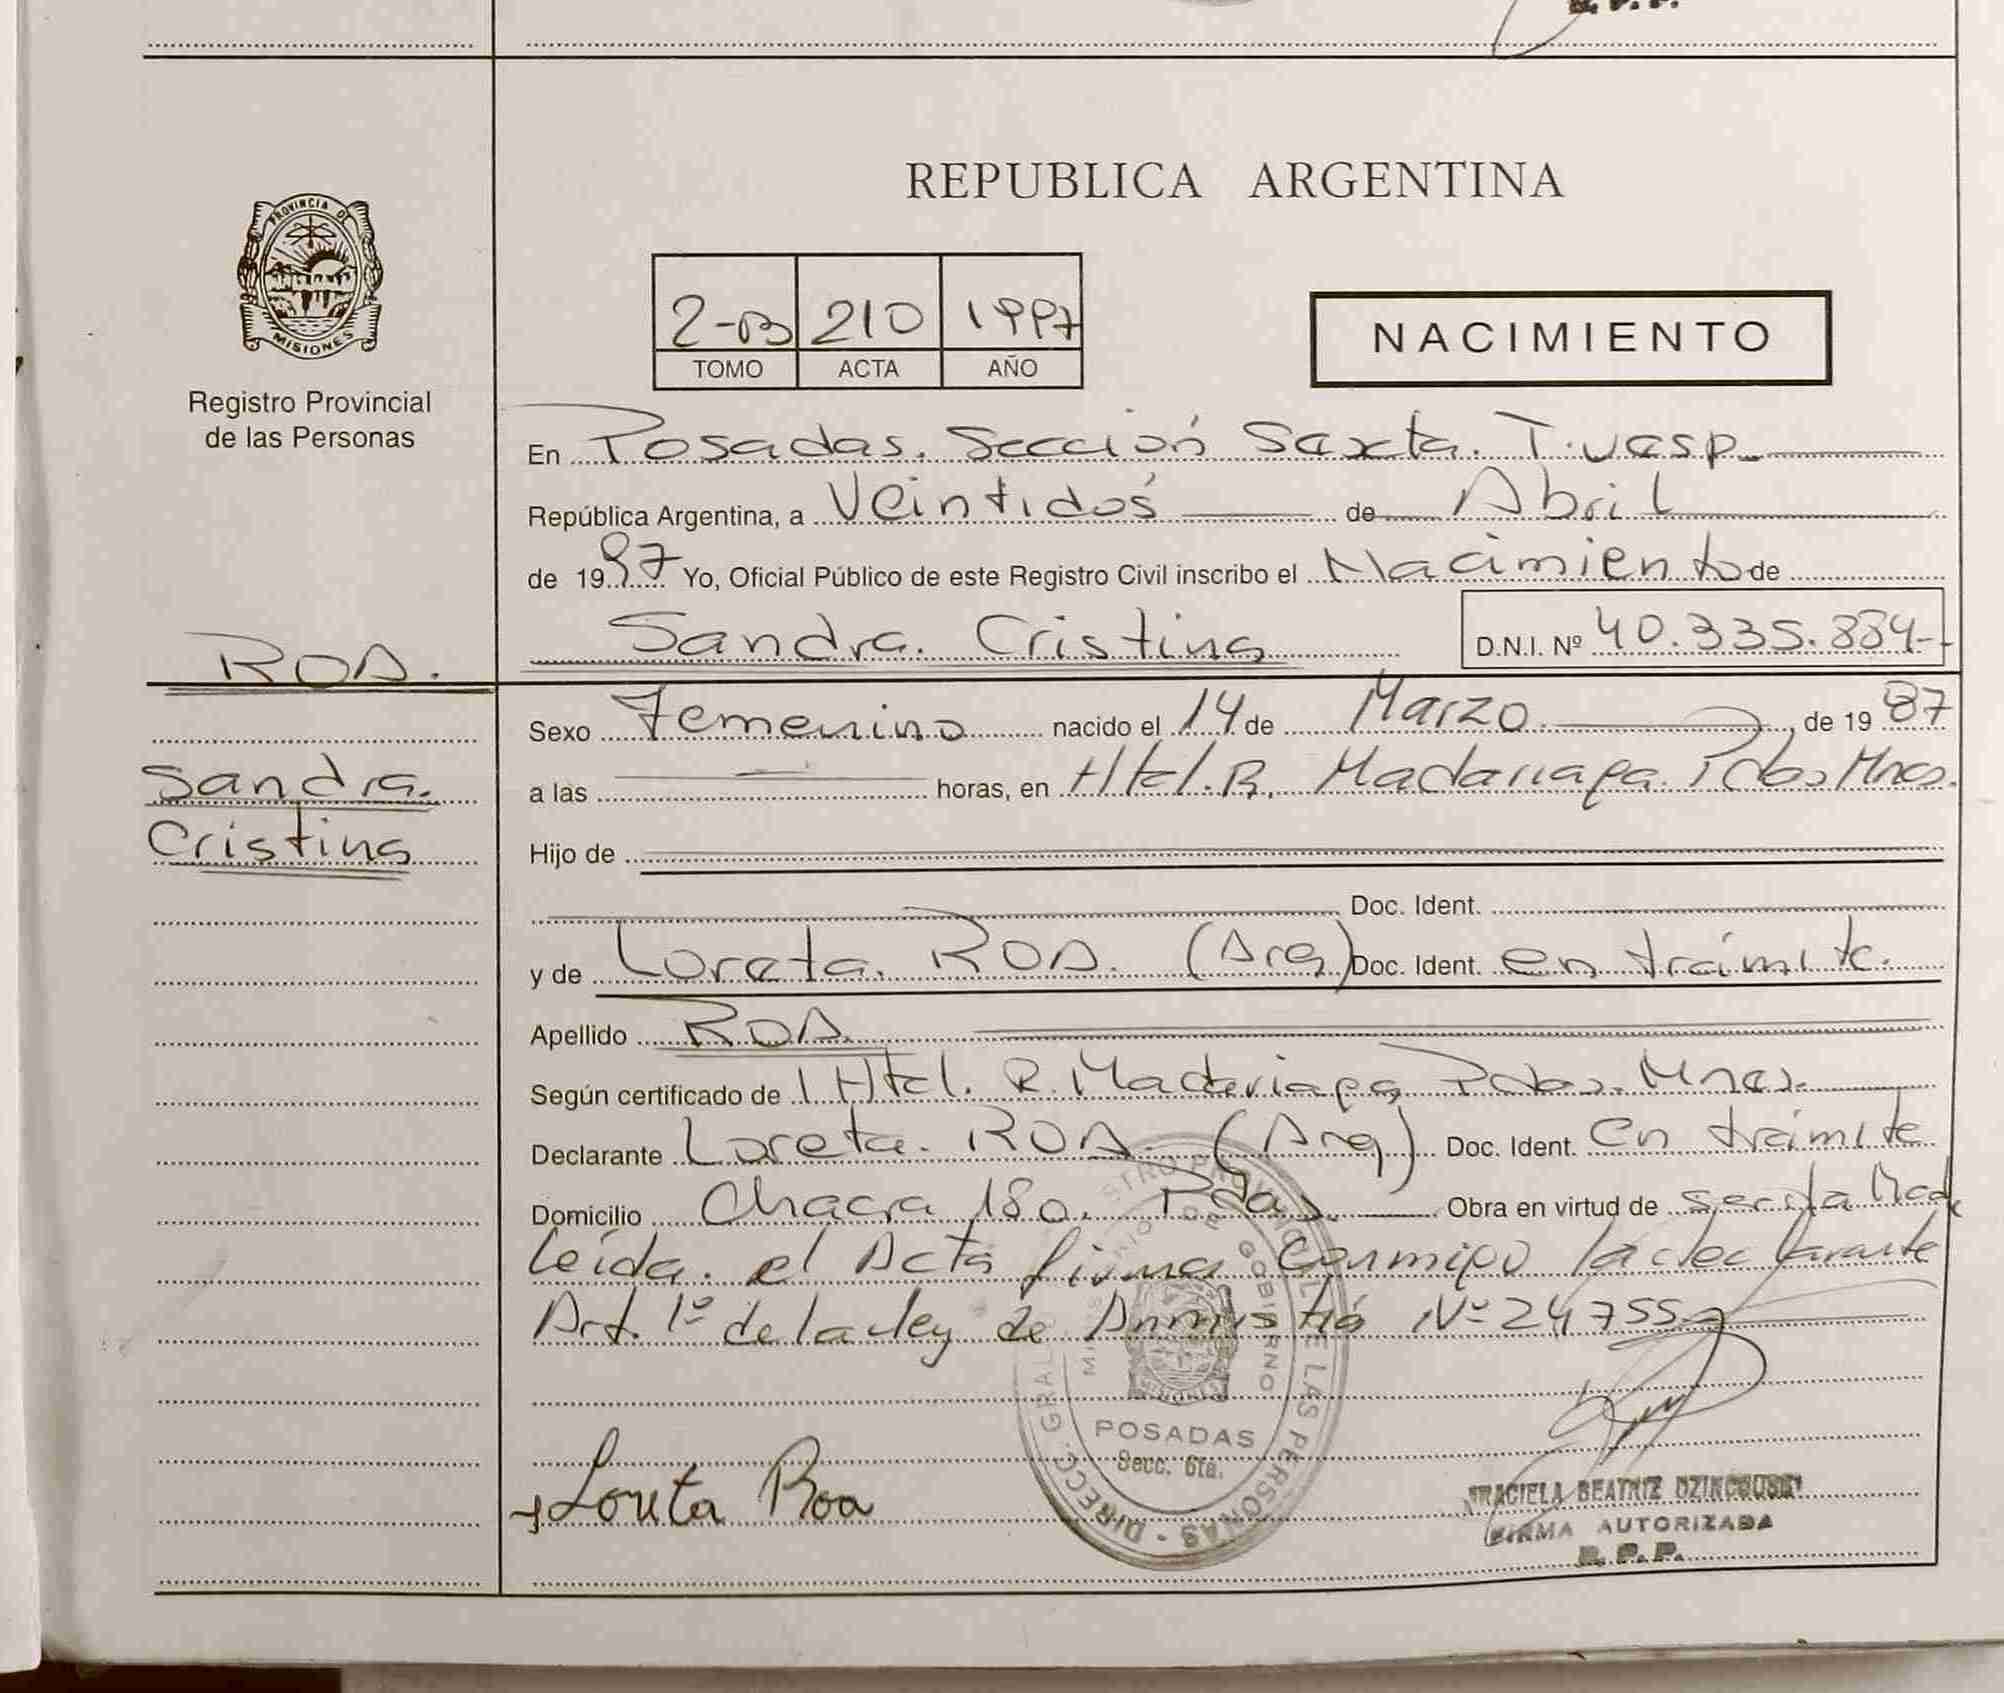 REPUBLICA ARGENTINA
PROVINCIA DE
MISIONES
Registro Provincial
de las Personas
2-B 210 1997
TOMO ACTA AÑO
NACIMIENTO
En Posadas. Sección Sexta. T. vesp.
República Argentina, a Veintidós de Abril
de 1997 Yo, Oficial Público de este Registro Civil inscribo el Nacimiento de
Sandra. Cristina D.N.I. Nº 40.335.884
ROA.
Sandra.
Cristina
Sexo Femenino nacido el 14 de Marzo de 1987
a las horas, en Htal. R. Madariaga. Pdas Mnes.
Hijo de
Doc. Ident.
y de Loreta. ROA. (Arg) Doc. Ident. en trámite.
Apellido ROA.
Según certificado de l Htal. R. Maderiaga Pdas. Mnes.
Declarante Loreta. ROA. (Arg) Doc. Ident. en trámite
Domicilio Chacra 180. Pdas. Obra en virtud de ser la Mad
leída. el Acta firma conmigo la declarante
Art. 1º de la ley de Anmistía Nº 24755
DIRECC. GRAL. REGISTRO PROVINCIAL DE LAS PERSONAS
MINISTERIO DE GOBIERNO
POSADAS
Secc. 6ta.
Loreta Roa
GRACIELA BEATRIZ
FIRMA AUTORIZADA
R. P. P.